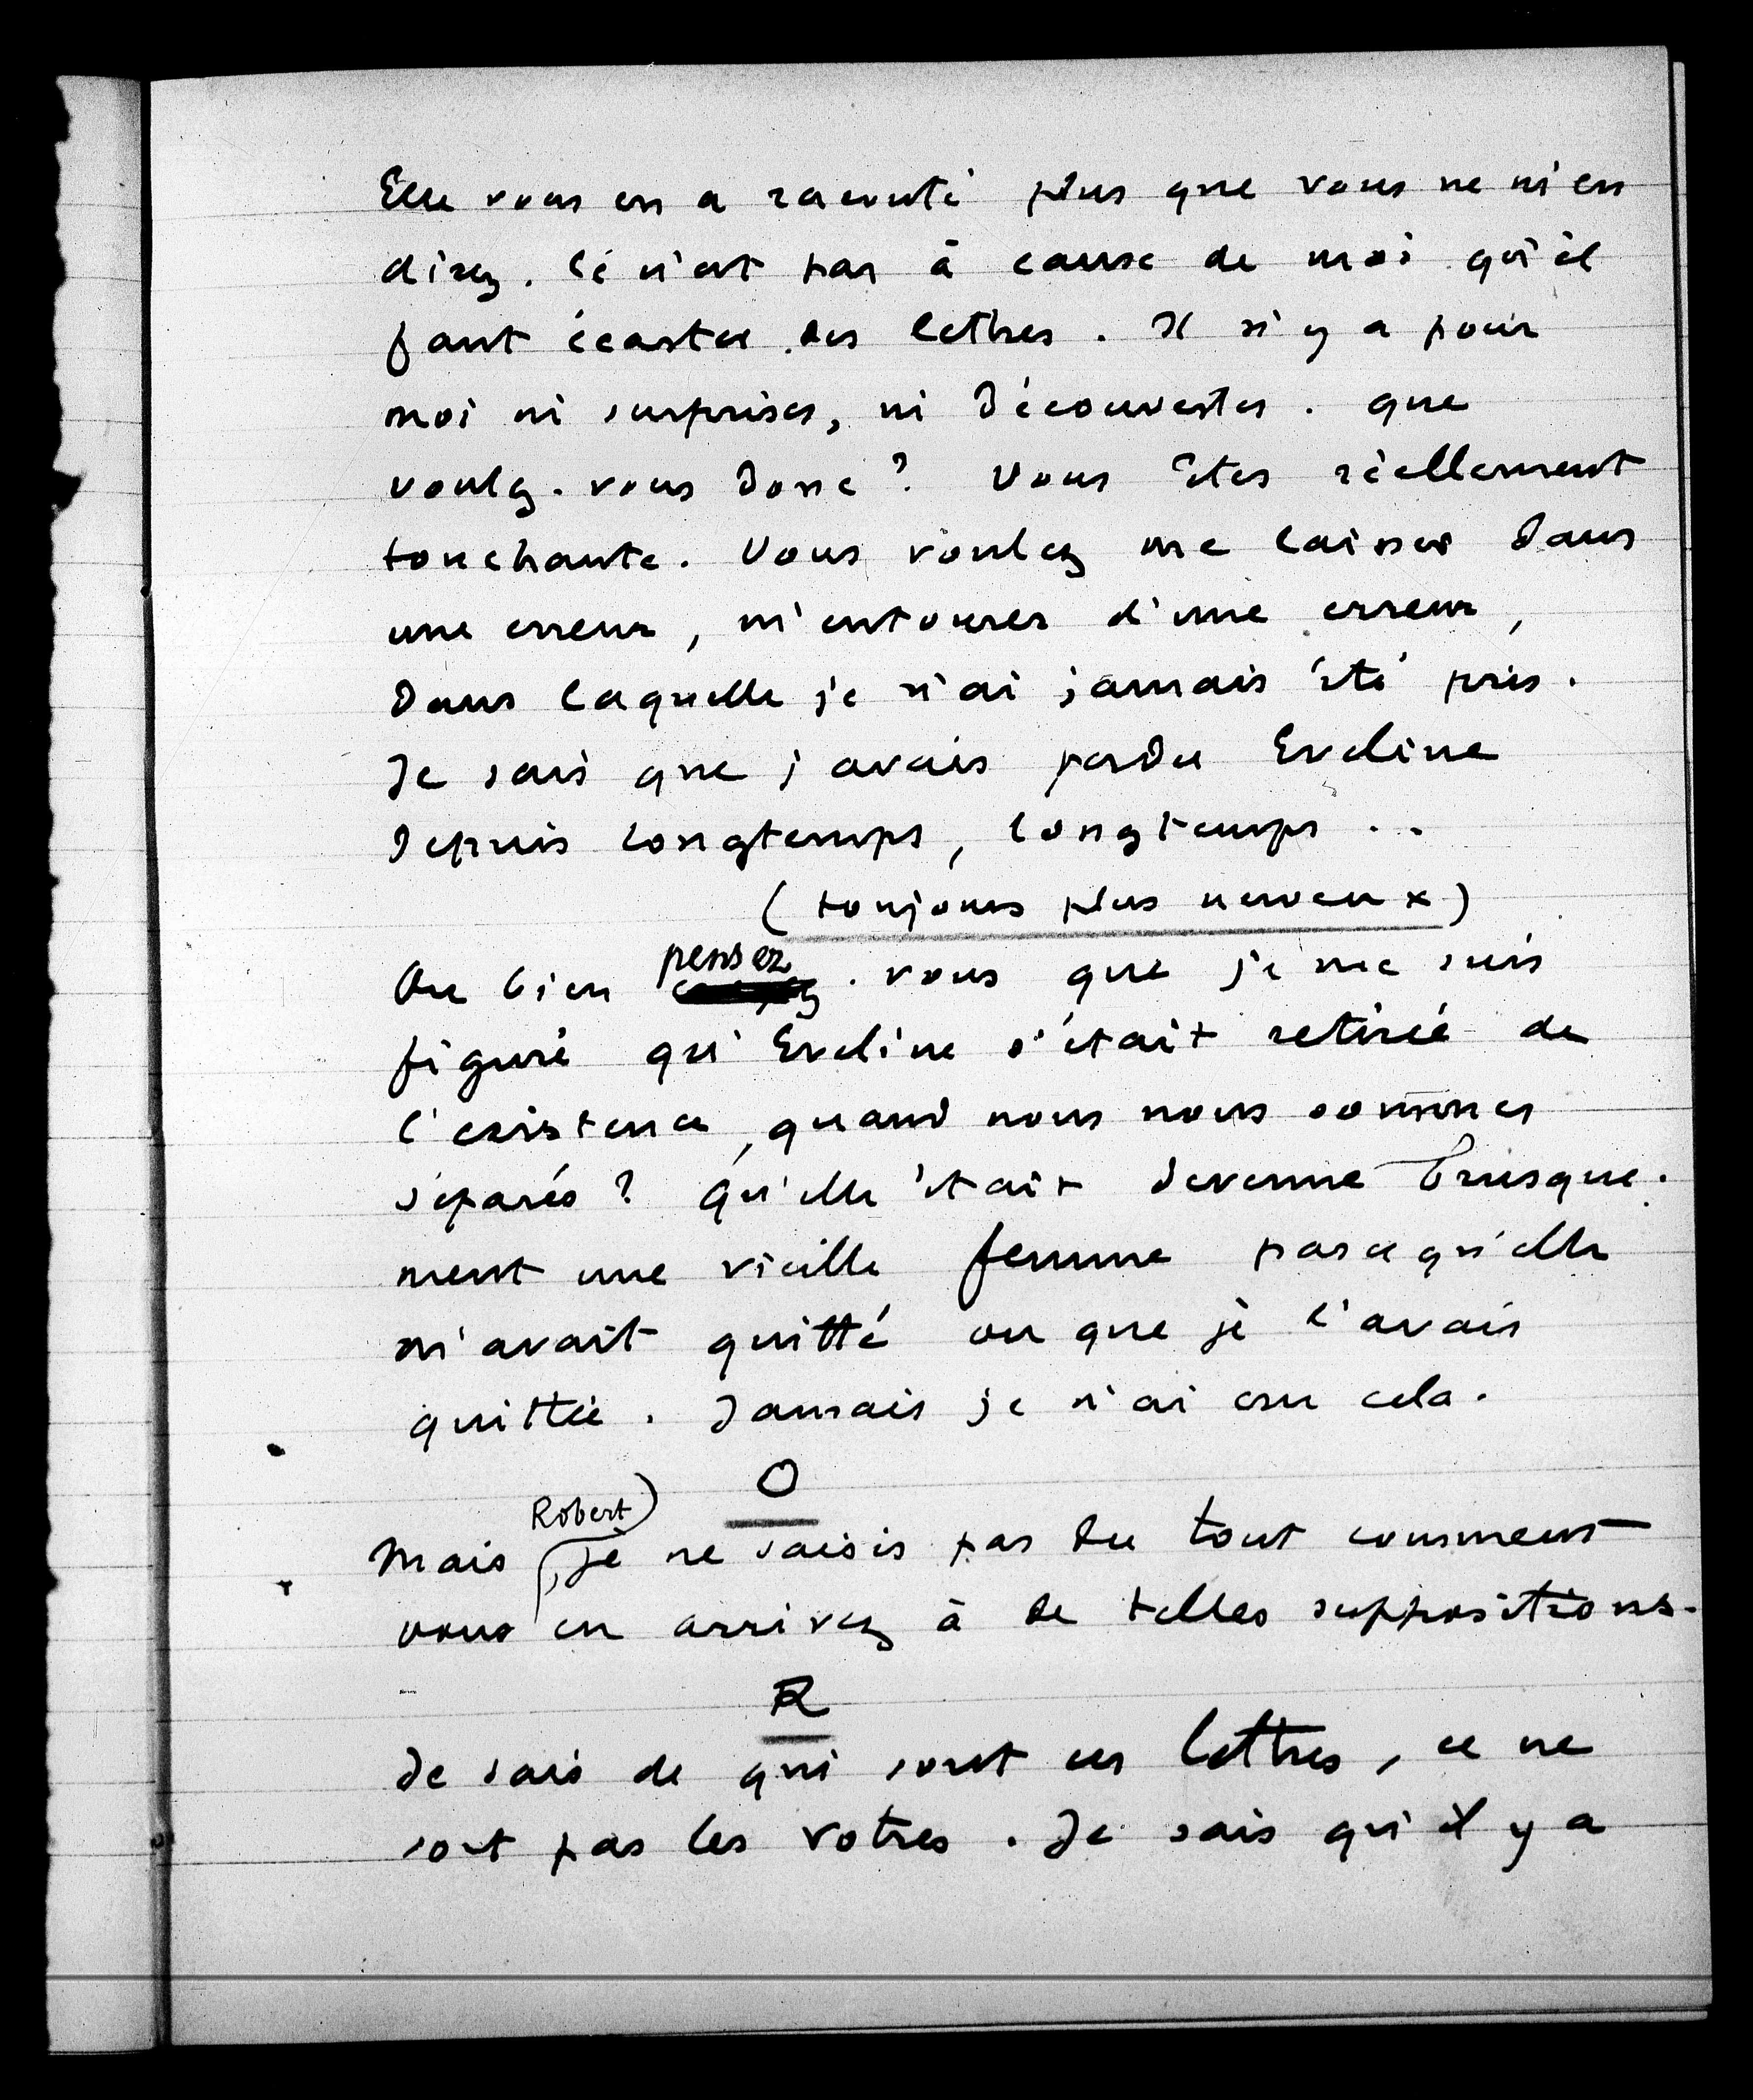 Elle vous en a raconté plus que vous ne m'en
direz. Ce n'est pas à cause de moi qu'il
faut écarter des lettres. Il n'y a pour
moi ni surprises, ni découvertes. que
voulez-vous donc ? Vous êtes réellement
touchante. Vous voulez me laisser dans
une erreur, m'entourer d'une erreur,
dans laquelle je n'ai jamais été pris.
Je sais que j'avais perdu Eveline
depuis longtemps, longtemps ..
(toujours plus nerveux)
Ou bien pensez-vous que je me suis
figuré qu'Eveline s'était retirée de
l'existence, quand nous nous sommes
séparés ? Qu'elle était devenue brusque-
ment une vieille femme parce qu'elle
m'avait quitté ou que je l'avais
quittée. Jamais je n'ai cru cela.
O
Mais, Robert, je ne saisis pas du tout comment
vous en arrivez à de telles suppositions.
R
Je sais de qui sont ces lettres, ce ne
sont pas les votres. Je sais qu'il y a